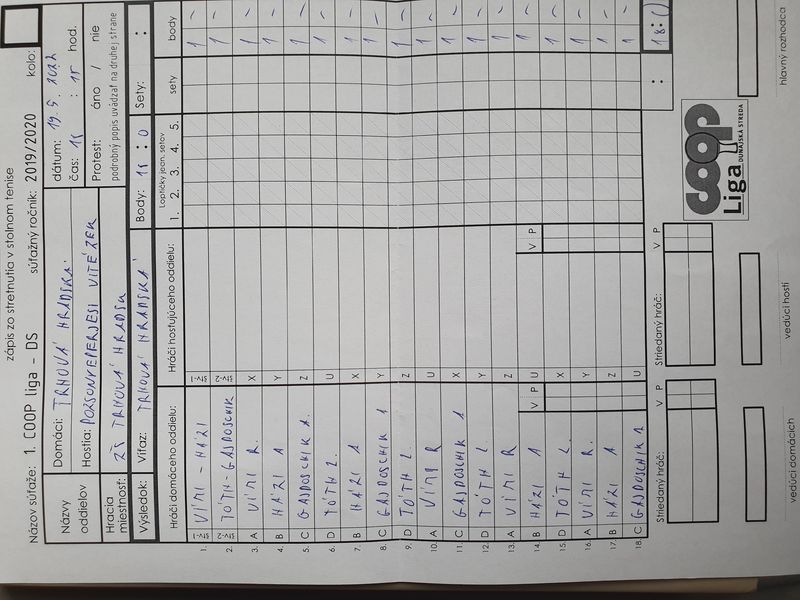 zápis zo stretnutia v stolnom tenise
Názov súťaže: 1. COOP liga - DS súťažný ročník: 2019/2020 kolo:
Názvy oddielov
Domáci: TRHOVÁ HRADSKÁ
Hostia: POZSONYEPERJESI VITÉZEK
dátum: 19.5.2022
čas: 15 : 15 hod.
Hracia miestnosť: ZŠ TRHOVÁ HRADSKÁ
Protest: áno / nie
podrobný popis uvádzať na druhej strane
Výsledok: Víťaz: TRHOVÁ HRADSKÁ Body: 18 : 0 Sety: :
Hráči domáceho oddielu: Hráči hosťujúceho oddielu: Loptičky jedn. setov sety body
1. 2. 3. 4. 5.
1. VÍMI - HÁZI 1 -
2. TÓTH - GAJDOSCHIK 1 -
3. A VÍMI R. X 1 -
4. B HÁZI A Y 1 -
5. C GAJDOSCHIK A. Z 1 -
6. D TÓTH L. U 1 -
7. B HÁZI A X 1 -
8. C GAJDOSCHIK A Y 1 -
9. D TÓTH L. Z 1 -
10. A VÍMI R U 1 -
11. C GAJDOSCHIK A X 1 -
12. D TÓTH L Y 1 -
13. A VÍMI R Z 1 -
14. B HÁZI A V P U V P 1 -
15. D TÓTH L. X 1 -
16. A VÍMI R. Y 1 -
17. B HÁZI A Z 1 -
18. C GAJDOSCHIK A U 1 -
: 18:0
Striedaný hráč: V P Striedaný hráč: V P
COOP
Liga DUNAJSKÁ STREDA
vedúci domácich vedúci hostí hlavný rozhodca